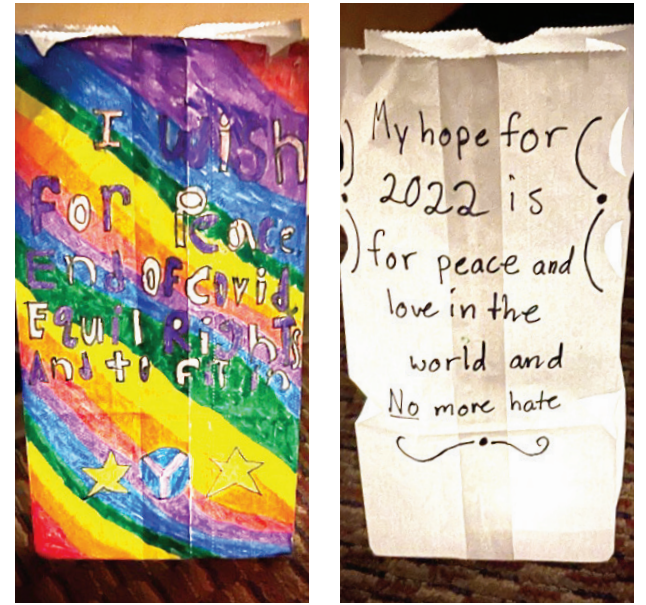 I wish
for Peace,
End of Covid,
Equil Rights
And to Fit in
Y
My hope for
2022 is
for peace and
love in the
world and
No more hate